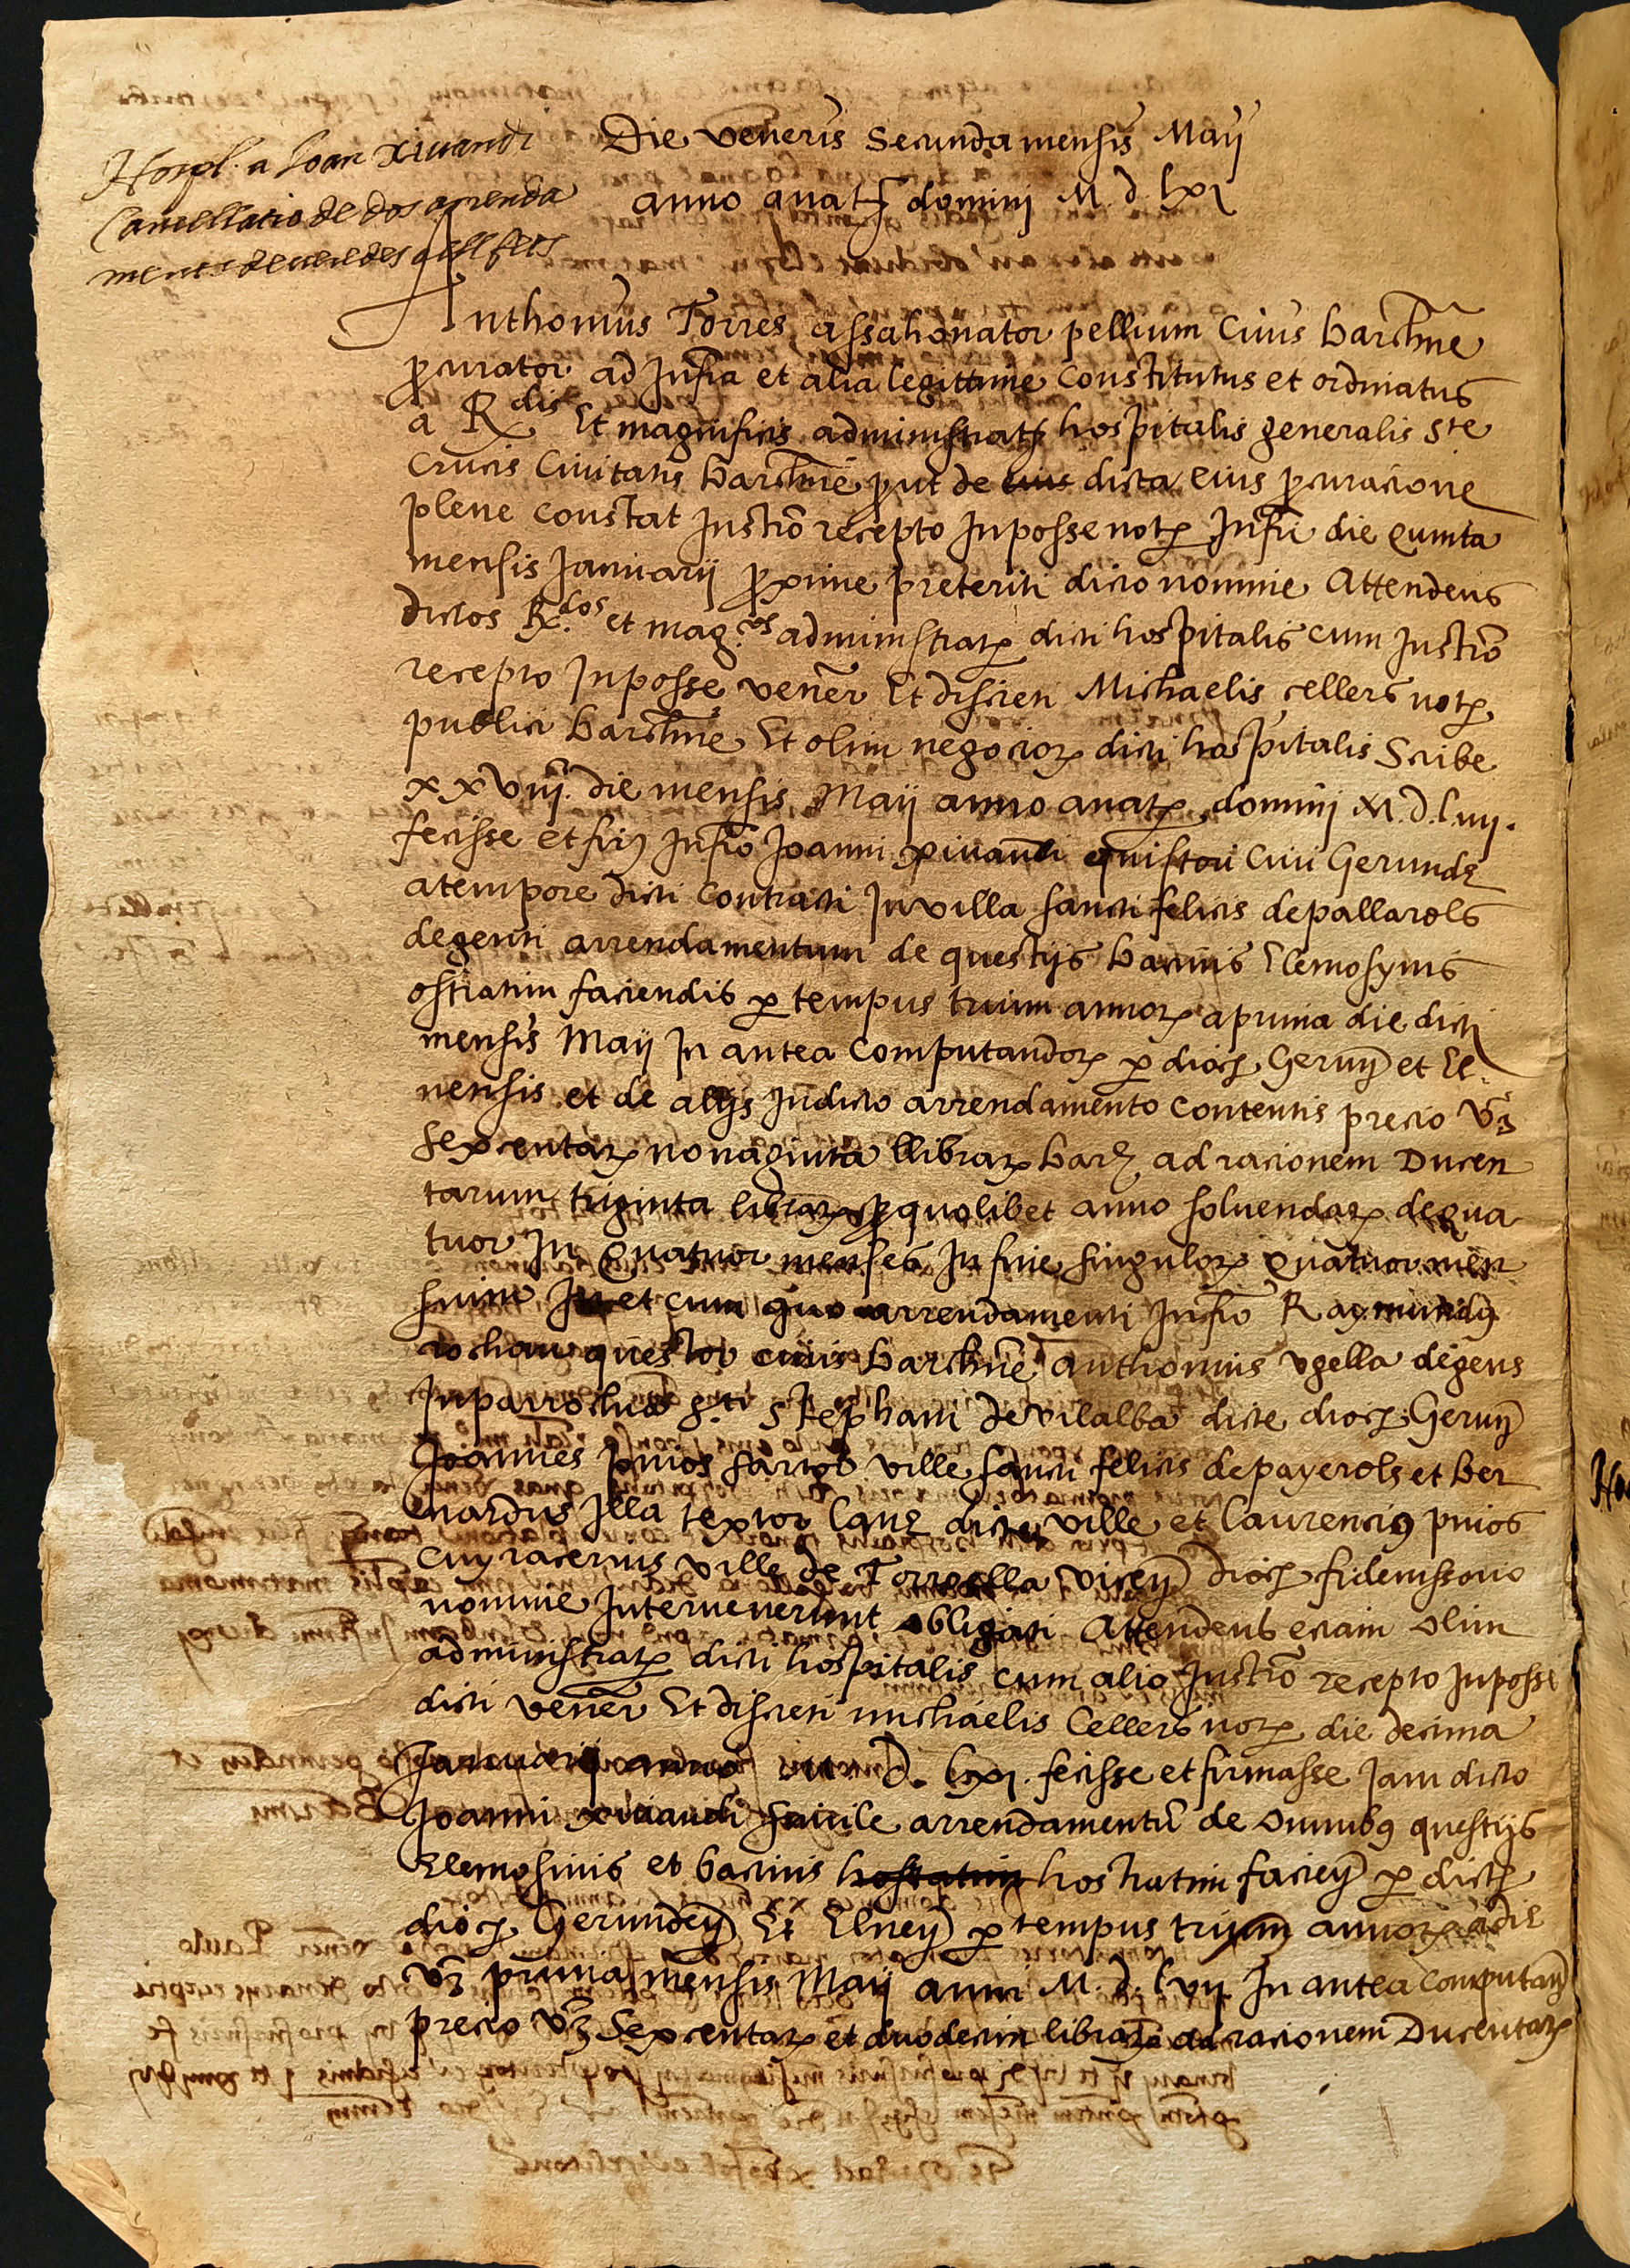 Hospl. a Joan Xivandi
Cancellatio de dos arrenda
ments de
Die veneris Secunda mensis Maij
anno a nat domini M. d. lxi
Anthonius Torres assahonator pellium Civis barchne
procurator ad Infra et alia legittime constitutus et ordinatus
a Rdis Et magnificis administrat hospitalis generalis Ste
Crucis Civitatis barchne prout de dicta eius procuracione
plene constat Instro recepto In posse not Infri die quinta
mensis Januarij proxime preteriti dicto nomine Attendens
dictos R.dos et mag.cos administrat dicti hospitalis cum Instro
recepto In posse vener Et discreti Michaelis cellers not
publici barchne Et olim negocior dicti hospitalis Scribe
xxviiij. die mensis Maij anno a nat domini M.d.l.iiij.
fecisse et Infro Joanni xivandi Civi Gerunde
a tempore dicti contracti In villa sancti felicis de pallarols
degenti arrendamentum de questijs bacinis Elemosynis
ostiatim faciendis per tempus trium annor a prima die dicti
mensis Maij In antea computandor per dioc Gerun et El-
nensis et de alijs In dicto arrendamento contentis precio vz
Sexcentar nonaginta llibrar bar ad racionem Ducen
tarum triginta librar pro quolibet anno solvendar de qua
tuor In Quatuor menses In fine singulor Quatuor men
sium et cum quo arrendamenti Infro Raymundus
questor civis barchne Anthonius vgella degens
In parrochia S.ti Stephani de vilalba dicte dioc Gerun
Joannes pnios sartor ville sancti felicis de payerols et ber
nardus Illa textor lane dicte ville et Laurencius pnios
ville de Torroella dioc fidemissorio
nomine Intervenerunt obligati Attendens eciam olim
administrat dicti hospitalis cum alio Instro recepto In posse
dicti vener Et discreti michaelis Cellers not die decima
Januarij anno M. d. fecisse et firmasse Jam dicto
Joanni xivandi simile arrendamentu de omnibus questijs
Elemosinis et bacinis hostiatim facien per dict
dioc Gerunden Et Elnen per tempus trium annor a die
vz prima mensis Maij anni M. d. lvij. In antea computan
precio vz Sexcentar et duodecim librar ad racionem Ducentar